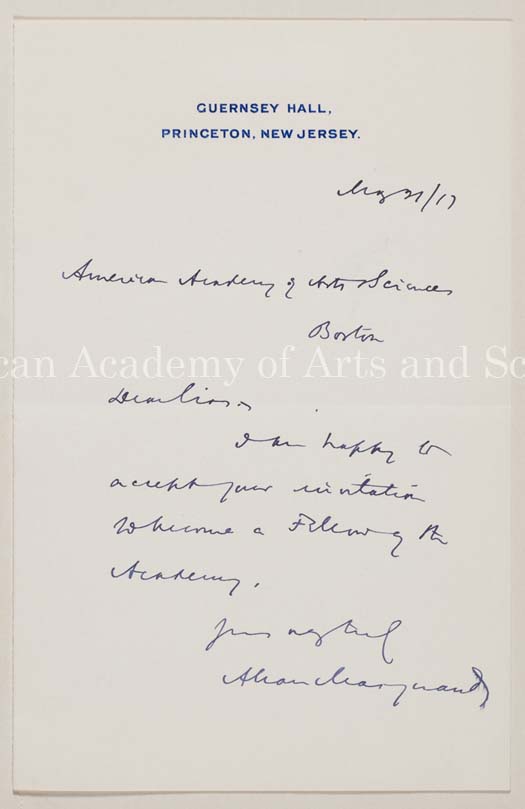 GUERNSEY HALL,
PRINCETON, NEW JERSEY.
May 21/17
American Academy of Arts & Sciences
Boston
can Academy of Arts and Sc
Dear Sirs
I am happy to
accept your invitation
to become a Fellow of the
Academy.
Yours respectful
Allan Marquand